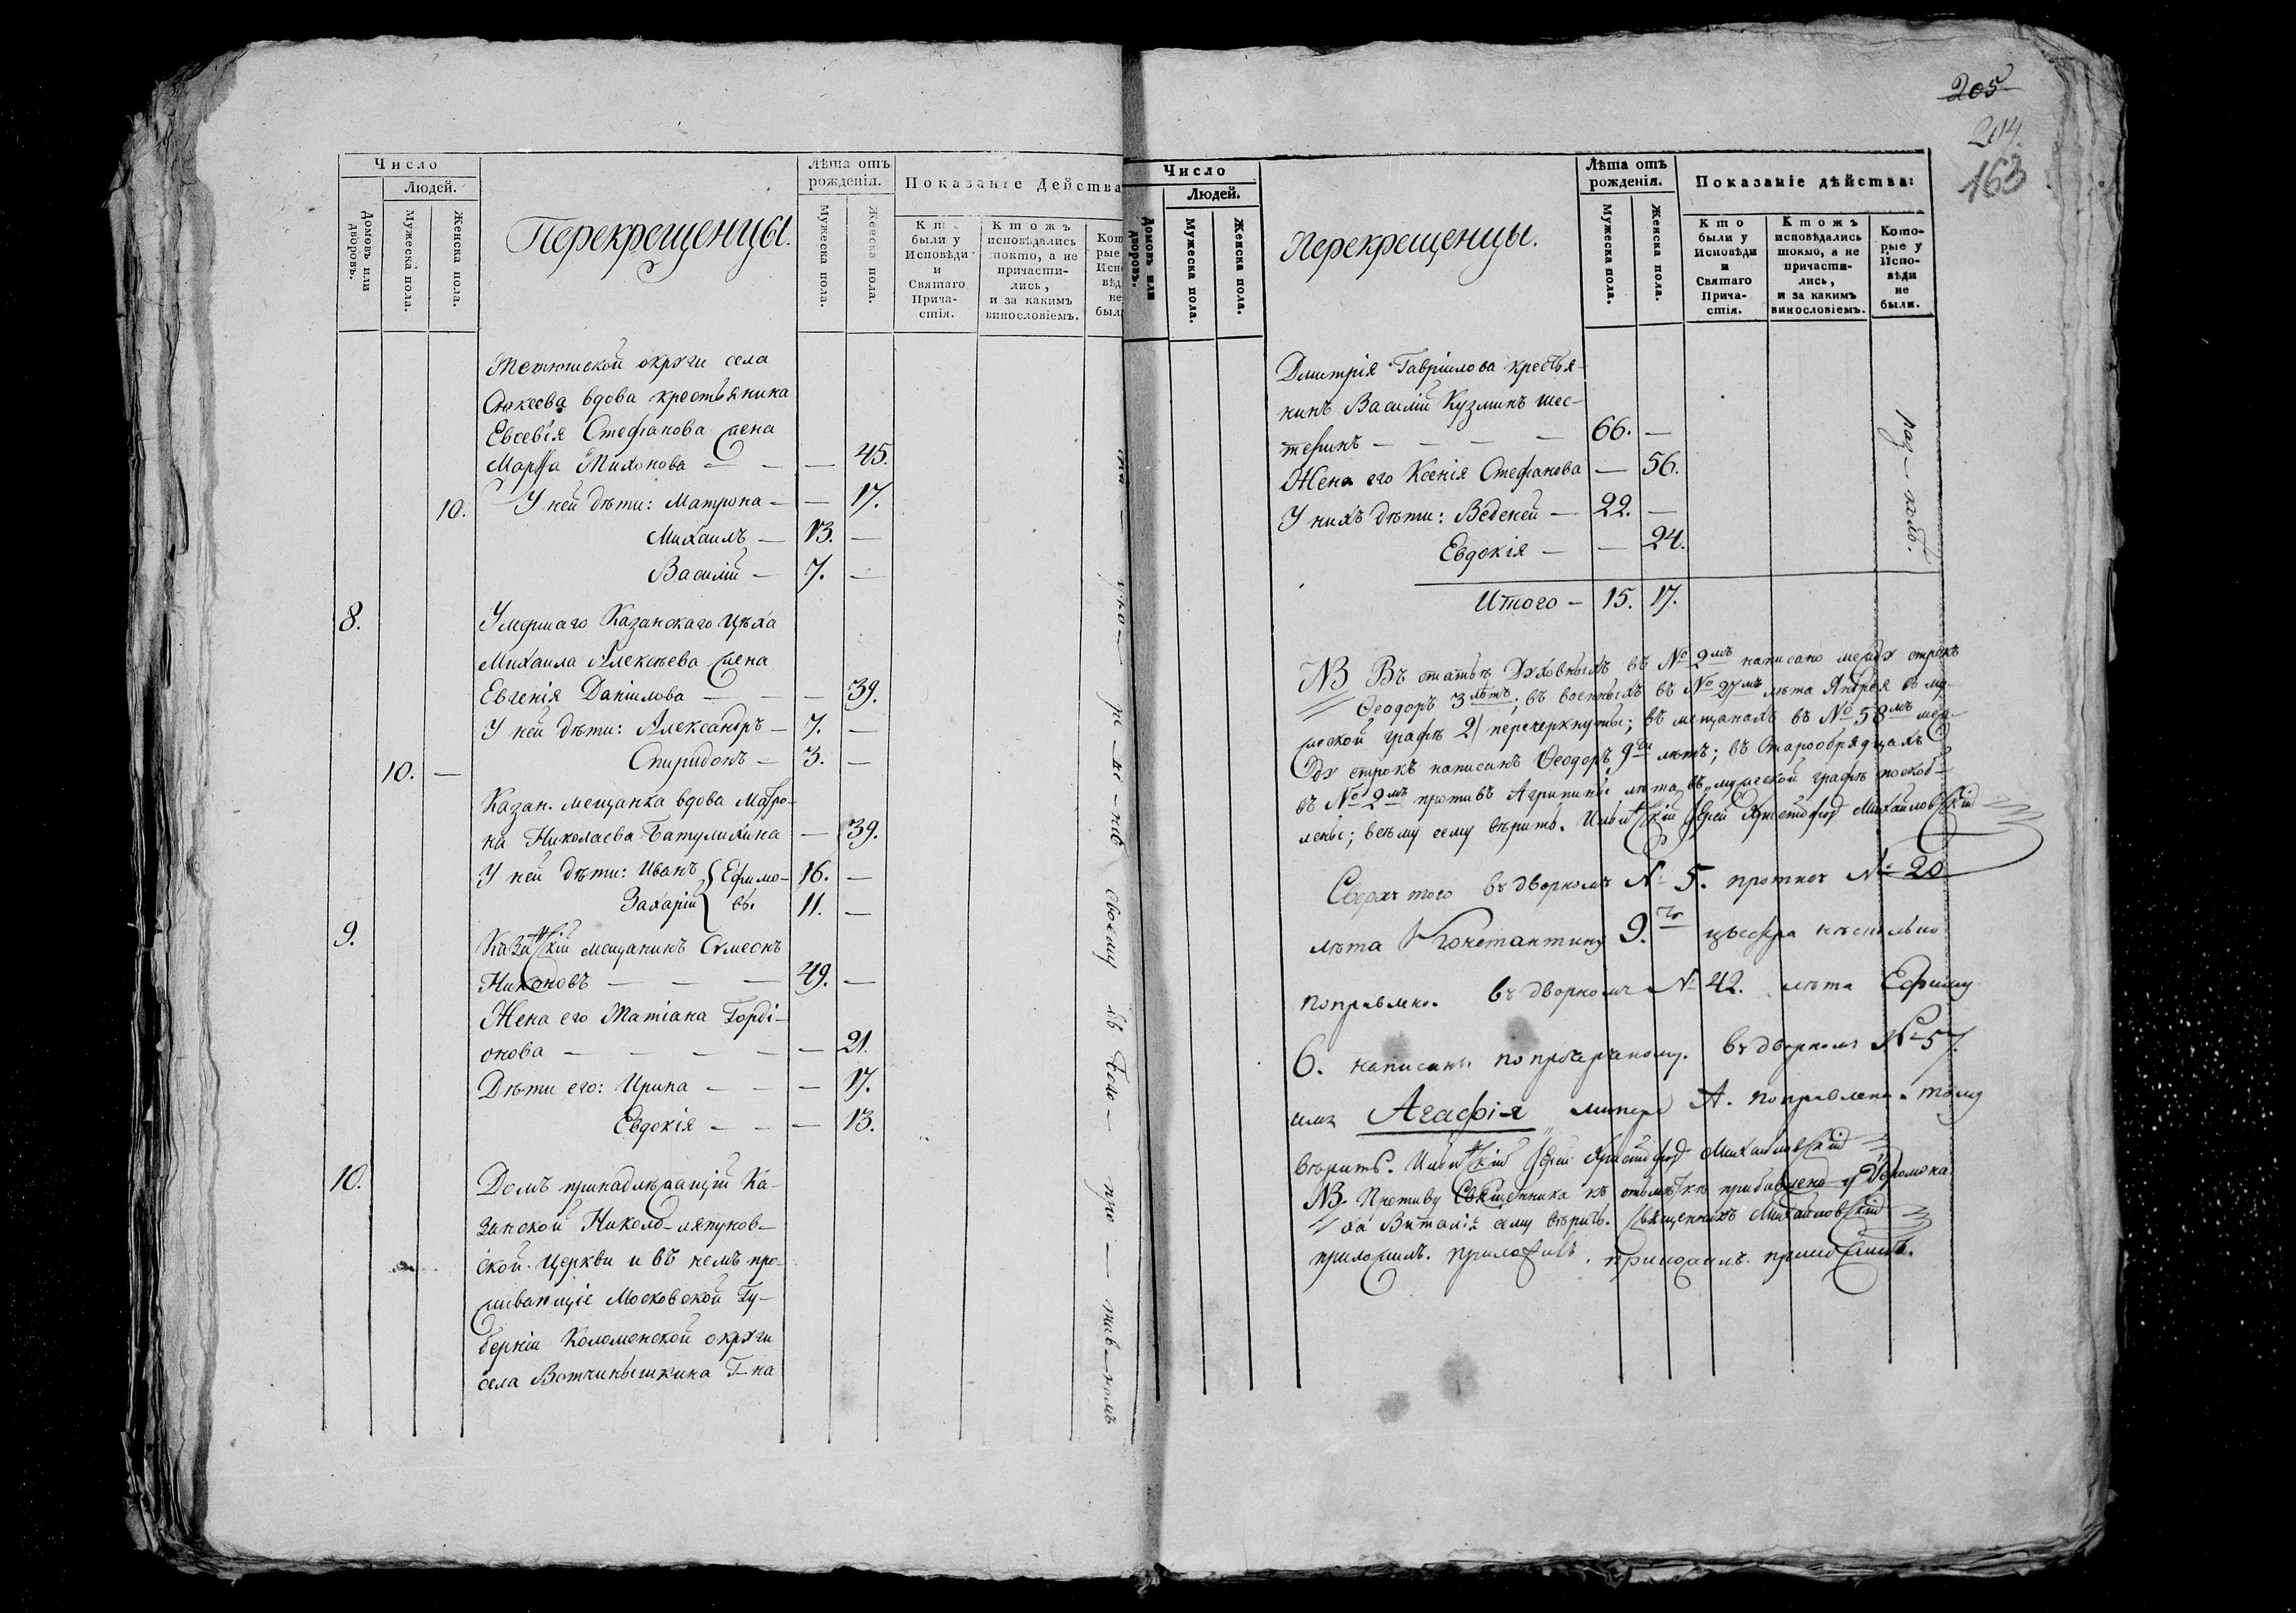 Число
Людей.
Домовъ или дворовъ.
Мужеска пола.
Женска пола.
Перекрещенцы.
Лѣта отъ рожденія.
Мужеска пола.
Женска пола.
Показаніе Действа
Кто были у Исповѣди и Святаго Прича-стія.
Ктожъ исповѣдались токмо, а не причасти-лись, и за какимъ винословіемъ.
Тетюшской округи села
Сюкеева вдова крестьянина
Евсевія Стефанова жена
Марѳа Тихонова — — — 45.
10. У ней дѣти: Матрона — — 17.
Михаилъ — 13. —
Василій — 7. —
8. Умершаго Казанскаго цѣха
Михаила Алексѣева жена
Евгенія Даніилова — — — 39.
У ней дѣти: Александръ — 7. —
10. — Спиридонъ — 3. —
Казан. мещанка вдова Матро-
на Николаева Батулихина — 39.
У ней дѣти: Иванъ } Ефимо- 16. —
Захарій } вы. 11. —
9. Казанскій мещанинъ Симеонъ
Никоновъ — — — 49. —
Жена его Татіана Горді-
онова — — — — — 21.
Дѣти его: Ирина — — — 17.
Евдокія — — — 13.
10. Домъ принадлежащій Ка-
занской Николо-ляпунов-
ской Церкви и въ немъ про-
живающіе Московской Гу-
берніи Коломенской округи
села Вотчинышкина Г-на
205
204
163
Число
Людей.
Домовъ или дворовъ.
Мужеска пола.
Женска пола.
Перекрещенцы.
Лѣта отъ рожденія.
Мужеска пола.
Женска пола.
Показаніе дѣйства:
Кто были у Исповѣди и Святаго Прича-стія.
Ктожъ исповѣдались токмо, а не причасти-лись, и за какимъ винословіемъ.
Кото-рые у Испо-вѣди не были.
Дмитрія Гавріилова кресть я-
нинъ Василій Кузминъ шес-
теринъ — — — — 66. —
Жена его Ксенія Стефанова — 56.
У нихъ дѣти: Веденей — 22. —
Евдокія — — 24.
раз — колъ.
Итого — 15. 17.
NB Въ статьѣ Духовныхъ въ № 2мъ написано между строкъ
Ѳеодоръ 3 лѣтъ; въ военныхъ въ № 27мъ лѣта Андрея въ му-
жеской графѣ 2/ перечеркнуты; въ мещанахъ въ № 58мъ меж-
ду строкъ написанъ Ѳеодоръ 9ти лѣтъ; въ Старообрядцахъ
въ № 2мъ противъ Агрипины лѣта въ мужеской графѣ поскоб-
лены; всѣму сему вѣрить. Ильинскій Іерей Михайловскій
Сверхъ того въ дворномъ № 5. противъ № 20
лѣта Константину 9.ть цыфра нѣсколько
поправлено. въ дворномъ № 42. лѣта Ефиму
6. написаны по прочерченому. въ дворномъ № 57.
имя Агафія литера А. поправлена. тому
вѣрить. Ильинскій Іерей Михайловскій
NB. Противу Священника къ отмѣткѣ прибавлено у Іеромона-
ха Виталія сему вѣрить. Священникъ Михайловскій
приложилъ. приложилъ. приложилъ. приложилъ.